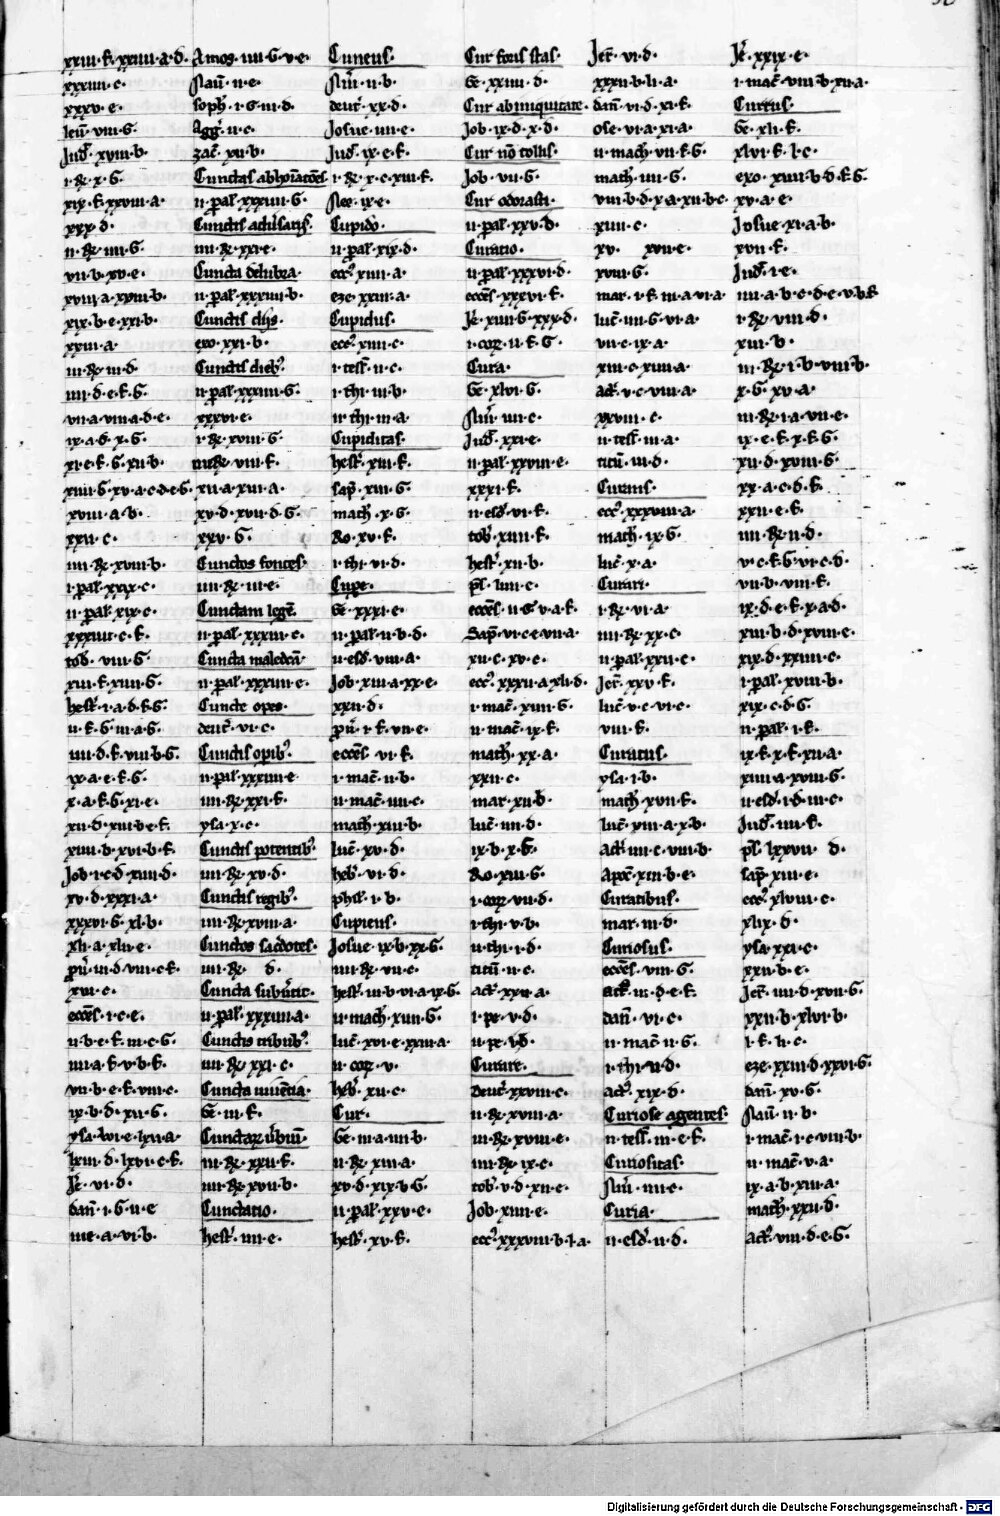 xxiii·f·xxiiii·a·d·
xxxiiii·c·
xxxv·e·
leuͥ·viii·G·
Judͥ·xviii·b·
i·Rͤ·x·G·
xix·f·xxviii·a·
xxx·d·
ii·Rͤ·iiii·G·
vii·b·xv·e·
xviii·a·xviii·b·
xix·b·e·xxi·b·
xxiii·a·
iii·Rͤ·iii·d·
iiii·d·e·f·G·
vii·a·viii·a·d·e·
ix·a·G·x·G·
xi·e·f·G·xii·b·
xiiii·G·xv·a·c·d·e·G·
xviii·a·b·
xxii·c·
iiii·Rͤ·xviii·b·
i·pal·xxix·c·
ii·pal·xix·c·
xxxiiii·c·f·
tob·viii·G·
xiii·f·xiiii·G·
hest·i·a·d·f·G·
ii·f·G·iii·a·G·
iiii·d·f·viii·b·G·
ix·a·e·f·G·
x·a·f·G·xi·e·
xii·d·xiii·b·e·f·
xiiii·b·xvi·b·f·
Job·i·c·d·xiiii·d·
xv·d·xxxi·a·
xxxvi·G·xl·b·
xli·a·xlii·e·
xvi·c·
eccēs·i·c·e·
ii·b·e·f·iii·c·G·
iiii·a·f·v·b·f·
vii·b·e·f·viii·c·
ix·b·d·xii·G·
lxiii·d·lxvi·c·f·
Jͤr·vi·d·
dan·i·G·ii·e
iiii·a·vi·b·
Amos·iiii·G·v·e·
Nau·ii·e·
soph·i·G·iii·d·
Agg·ii·c·
zac·xii·b·
Cunctas abhoīatōes·
ii·pal·xxxiiii·G·
Cunctis adu'sariis·
iiii·Rͤ·xxi·e·
Cuncta delubra·
ii·pal·xxxiiii·b·
Cunctis diis·
exo·xxi·b·
Cunctis dieb'·
ii·pal·xxxiiii·G·
xxxvi·e·
i·Rͤ·xviii·G·
iiii·Rͤ·viii·f·
xii·a·xiii·a·
xv·d·xvii·d·G·
xxv·G·
Cunctos fontes·
iiii·Rͤ·iii·e·
Cunctam legē·
ii·pal·xxxiii·c·
Cuncta maledcā·
ii·pal·xxxiiii·e·
Cuncte opes·
deut·vi·c·
Cunctis opib'·
ii·pal·xxxiiii·e
iiii·Rͤ·xxi·f·
ysa·x·c·
Cunctis potentib'·
iiii·Rͤ·xv·d·
Cunctis regib'·
iiii·Rͤ·xviii·a·
Cunctos sac'dotes·
iiii·Rͤ· d·
Cuncta subūtit·
ii·pal·xxxiiii·a·
Cunctis tribub'·
iiii·Rͤ·xxi·c·
Cuncta uiuētia·
Ge·iii·f·
Cunctaꝝ u'biū·
iii·Rͤ·xxii·f·
iiii·Rͤ·xvii·b·
Cunctatio·
hest·iiii·e·
Cuneus·
Nūi·ii·b·
deut·xx·d·
Josue·iiii·e·
Jud·ix·e·f·
i·Rͤ·x·c·xiii·f·
Nee·ix·e·
Cupido·
ii·pal·xix·d·
ecc'·xiiii·a·
eze·xxiii·a·
Cupidus·
ecc'·xiiii·c·
i·tess·ii·c·
i·thi·iii·b·
ii·thi·iii·a·
Cupiditas·
hest·xiii·f·
sap·xiii·G·
math·x·G·
Ro·xv·f·
i·thi·vi·d·
Cupe·
Ge·xxxi·e·
ii·pal·ii·b·d·
ii·esd·viii·a·
Job·xiii·a·xx·e·
xxii·d·
pū·i·f·vii·e·
eccēs·vi·f·
i·mac·ii·b·
ii·mac·iiii·c·
math·xiii·b·
luc·xv·d·
heb·vi·d·
phil·i·b·
Cupiens·
Josue·ix·b·xx·G·
iiii·Rͤ·vii·c·
hest·iii·b·vi·a·ix·G·
ii·mach·xiiii·G·
luc·xvi·e·xxiii·a·
ii·coꝝ·v·
heb·xii·c·
Cur·
Ge·iii·a·iiii·b·
ii·Rͤ·xiii·a·
xv·d·xix·b·G·
ii·pal·xxv·e·
hest·xv·f·
Cur foris stas·
Ge·xxiiii·d·
Cur ab iniquitate·
Job·ix·d·x·d·
Cur nō tollis·
Job·vii·G·
Cur odorasti·
ii·pal·xxv·b·
Curatio·
ii·pal·xxxvi·d·
eccēs·xxxvi·f·
Jͤr·xiiii·G·xxx·d·
i·coꝝ·ii·f·G·
Cura·
Ge·xlvi·G·
Nūi·iiii·c·
Jud·xxi·e·
ii·pal·xxviii·e·
xxxi·f·
ii·esd·vi·f·
tob·xiiii·f·
hest·xii·b·
ps·liiii·c·
eccēs·ii·G·v·a·f·
Sap·vi·c·e·vii·a·
xii·c·xv·e·
ecc'·xxxii·a·xli·d·
i·mac·xiiii·G·
ii·mac·ix·f·
math·xx·a·
xxii·c·
mar·xii·b·
luc·iiii·d·
ix·b·x·G·
Ro·xiii·G·
i·coꝝ·vii·d·
i·thi·v·b·
ii·thi·i·d·
titū·ii·c·
act·xxii·a·
i·pe·v·d·
Curare·
deut·xxviii·c·
ii·Rͤ·xviii·a·
iii·Rͤ·xviii·e·
iiii·Rͤ·ix·c·
tob·v·d·xii·e·
Job·xiiii·e·
ecc'·xxxviii·b·l·a·
Jer·vi·d·
xxxii·b·li·a·
dan·vi·d·xi·f·
ose·vi·a·xi·a·
ii·mach·vii·f·G·
math·iiii·G·
viii·b·d·x·a·xii·b·c·
xiii·c·
xv· xvii·e·
xviii·G·
mar·i·f·iii·a·vi·a·
luc·iiii·G·vi·a·
vii·c·ix·a·
xiii·c·xiiii·a·
act·v·c·viii·a·
xxviii·c·
ii·tess·iii·a·
titū·iii·d·
Curans·
ecc'·xxxviii·a·
math·ix·G·
luc·x·a·
Curari·
i·Rͤ·vi·a·
iiii·Rͤ·xx·c·
ii·pal·xxii·c·
Jer·xxv·f·
luc·v·c·vi·c·
viii·f·
Curatus·
ysa·i·b·
math·xvii·f·
luc·viii·a·x·b·
act·iiii·c·viii·b·
Apoc·xiii·b·e·
Curatibus·
mar·iii·d·
Curiosus·
eccēs·viii·G·
act·iii·d·e·f·
dan·vi·c·
ii·mac·ii·G·
i·thi·ii·d·
act·xix·d·
Curiose agentes·
ii·tess·iii·e·f·
Curiositas·
Nūi·iiii·e·
Curia·
ii·esd·ii·d·
Jͤr·xxix·e·
i·mac·viii·b·xii·a·
Currus·
Ge·xli·f·
xlvi·f·l·c·
exo·xiiii·b·d·f·G·
xv·a·e·
Josue·xi·a·b·
xvii·f·
Jud·i·e·
iiii·a·b·c·d·e·v·b·f·
i·Rͤ·viii·d·
xiii·b·
iii·Rͤ·i·b·viii·b·
x·G·xv·a·
iiii·Rͤ·i·a·vii·e·
ix·e·f·x·f·G·
xii·d·xviii·G·
xx·a·c·d·f·
xxii·e·f·
iiii·Rͤ·ii·d·
v·c·f·G·vi·c·d·
vii·b·viii·f·
ix·d·e·f·x·a·d·
xiii·b·d·xviii·e·
xix·d·xxiiii·c·
i·pal·xviii·b·
xix·c·d·G·
ii·pal·i·f·
ix·f·x·f·xii·a·
xiiii·a·xviii·G·
ii·esd·i·d·iii·c·
Jud·iiii·f·
ps·lxxvii· d·
sap·xiii·e·
ecc'·xlviii·c·
xlix·d·
ysa·xxi·c·
xxii·b·e·
Jer·iiii·d·xvii·G·
xxii·b·xlvi·b·
l·f·li·c·
eze·xxiii·d·xxvi·G·
dan·xv·G·
Nau·ii·b·
i·mac·i·c·viii·b·
ii·mac·v·a·
ix·a·b·xiii·a·
math·xxii·d·
act·viii·d·e·G·
Digitalisierung gefördert durch die Deutsche Forschungsgemeinschaft - DFG